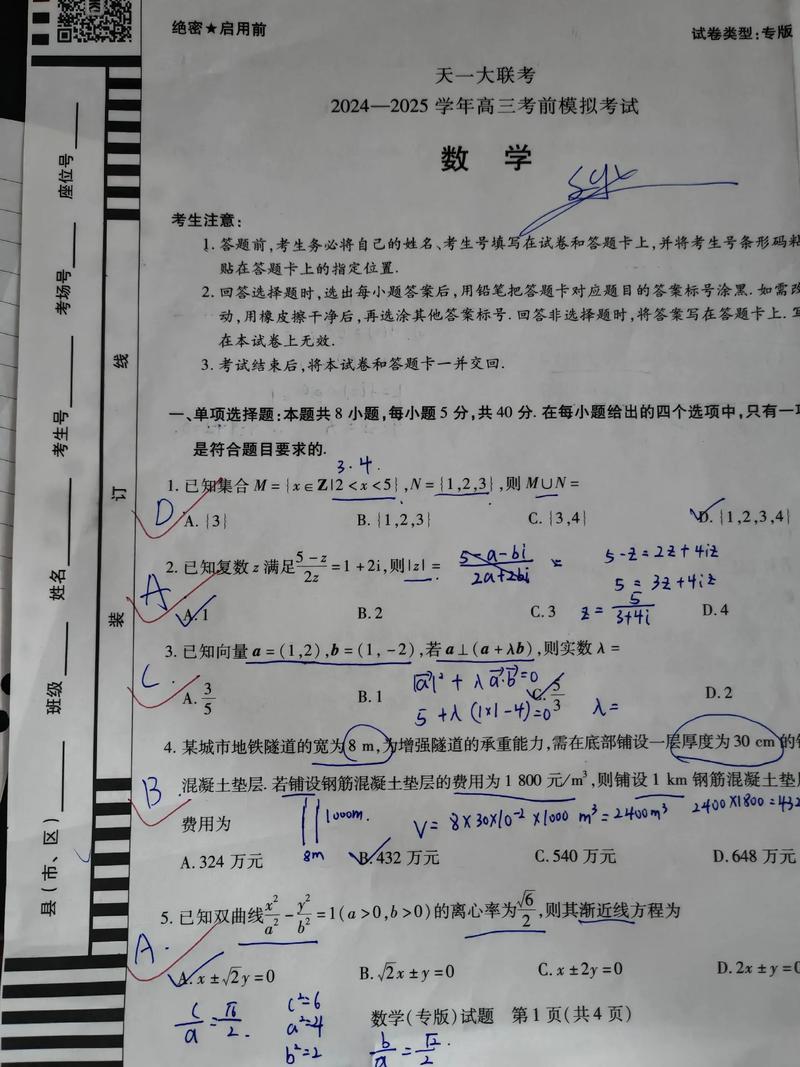 绝密★启用前
试卷类型:专版
天一大联考
2024—2025学年高三考前模拟考试
数 学
syx
考生注意:
1.答题前,考生务必将自己的姓名、考生号填写在试卷和答题卡上,并将考生号条形码粘
贴在答题卡上的指定位置.
2.回答选择题时,选出每小题答案后,用铅笔把答题卡对应题目的答案标号涂黑.如需改
动,用橡皮擦干净后,再选涂其他答案标号.回答非选择题时,将答案写在答题卡上.写
在本试卷上无效.
3.考试结束后,将本试卷和答题卡一并交回.
一、单项选择题:本题共8小题,每小题5分,共40分.在每小题给出的四个选项中,只有一项
是符合题目要求的.
3.4.
1.已知集合M={x∈Z|2<x<5},N={1,2,3},则M∪N=
D
A.{3} B.{1,2,3} C.{3,4} D.{1,2,3,4}
2.已知复数z满足(5-z)/(2z)=1+2i,则|z|=
(5-a-bi)/(2a+2bi) =
5-z=2z+4iz
5=3z+4iz
z=5/(3+4i)
A
A.1 B.2 C.3 D.4
3.已知向量a=(1,2),b=(1,-2),若a⊥(a+λb),则实数λ=
|a|²+λa·b=0
C.
A.3/5 B.1 C.5/3 D.2
5+λ(1×1-4)=0 λ=
4.某城市地铁隧道的宽为8 m,为增强隧道的承重能力,需在底部铺设一层厚度为30 cm的
B
混凝土垫层.若铺设钢筋混凝土垫层的费用为1 800元/m³,则铺设1 km钢筋混凝土垫层
费用为
1000m.
8m
V=8×30×10⁻²×1000 m³=2400m³
2400×1800=432
A.324万元 B.432万元 C.540万元 D.648万元
5.已知双曲线x²/a²-y²/b²=1(a>0,b>0)的离心率为√6/2,则其渐近线方程为
A.
A.x±√2y=0 B.√2x±y=0 C.x±2y=0 D.2x±y=0
c/a=√6/2.
c²=6
a²=4
b²=2
b/a=√2/2.
数学(专版)试题 第1页(共4页)
县(市、区)
班级
姓名
考生号
考场号
座位号
装
订
线